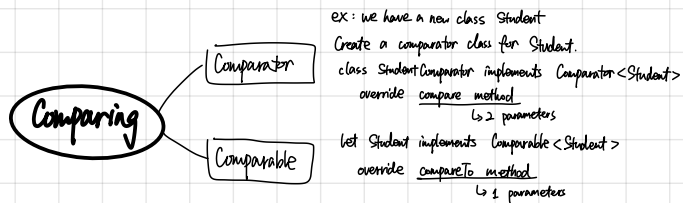 Comparing
Comparator
ex: we have a new class Student
Create a comparator class for Student.
class StudentComparator implements Comparator<Student>
override compare method
↳ 2 parameters
Comparable
let Student implements Comparable<Student>
override compareTo method
↳ 1 parameters